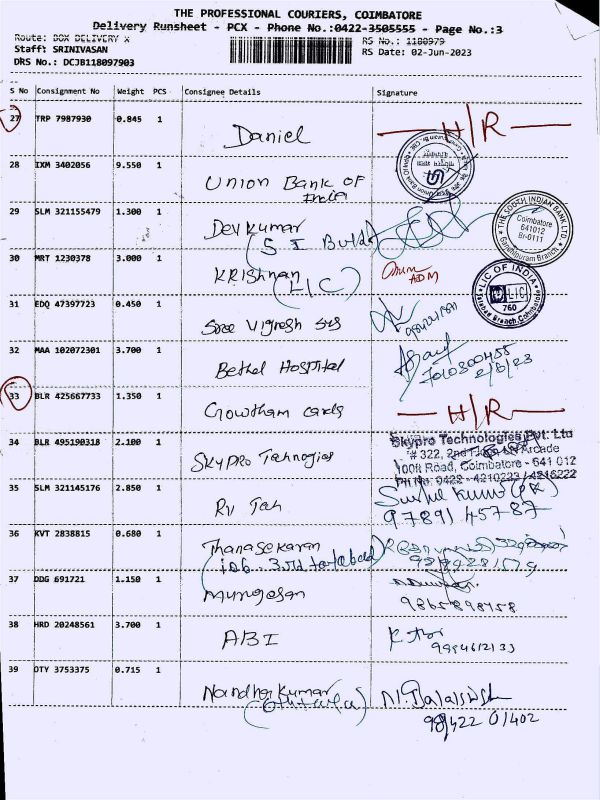 THE PROFESSIONAL COURIERS, COIMBATORE
Delivery Runsheet - PCX - Phone No.:0422-3505555 - Page No.:3
Route: BOX DELIVERY X
RS No.: 1180979
Staff: SRINIVASAN
RS Date: 02-Jun-2023
DRS No.: DCJB118097903
S No Consignment No Weight PCS Consignee Details Signature
27 TRP 7987930 0.845 1 Daniel H/R
28 IXM 3402056 9.550 1 Union Bank OF India
29 SLM 321155479 1.300 1 Dev Kumar
(S I Bank)
THE SOUTH INDIAN BANK LTD.
Coimbatore
641012
Br-0111
Gandhipuram Branch
30 MRT 1230378 3.000 1 Krishnan
(LIC)
ADM
LIC OF INDIA
LIC
760
31 EDQ 47397723 0.450 1 Sree Vignesh
32 MAA 102072301 3.700 1 Bethel Hospital
2/6/23
33 BLR 425667733 1.350 1 Gowtham cards H/R
34 BLR 495190318 2.100 1 Skypro Tehnogies
Skypro Technologies Pvt. Ltd
# 322, 2nd Floor, Arcade
100ft Road, Coimbatore - 641 012
Ph No: 0422 - 4210223 / 4216222
35 SLM 321145176 2.850 1 RV Teh
97891 45787
36 KVT 2838815 0.680 1 Thanasekaran
37 DDG 691721 1.150 1 Murugesan
9865898758
38 HRD 20248561 3.700 1 ABI
9994612133
39 OTY 3753375 0.715 1 Nandha Kumar
98422 01402